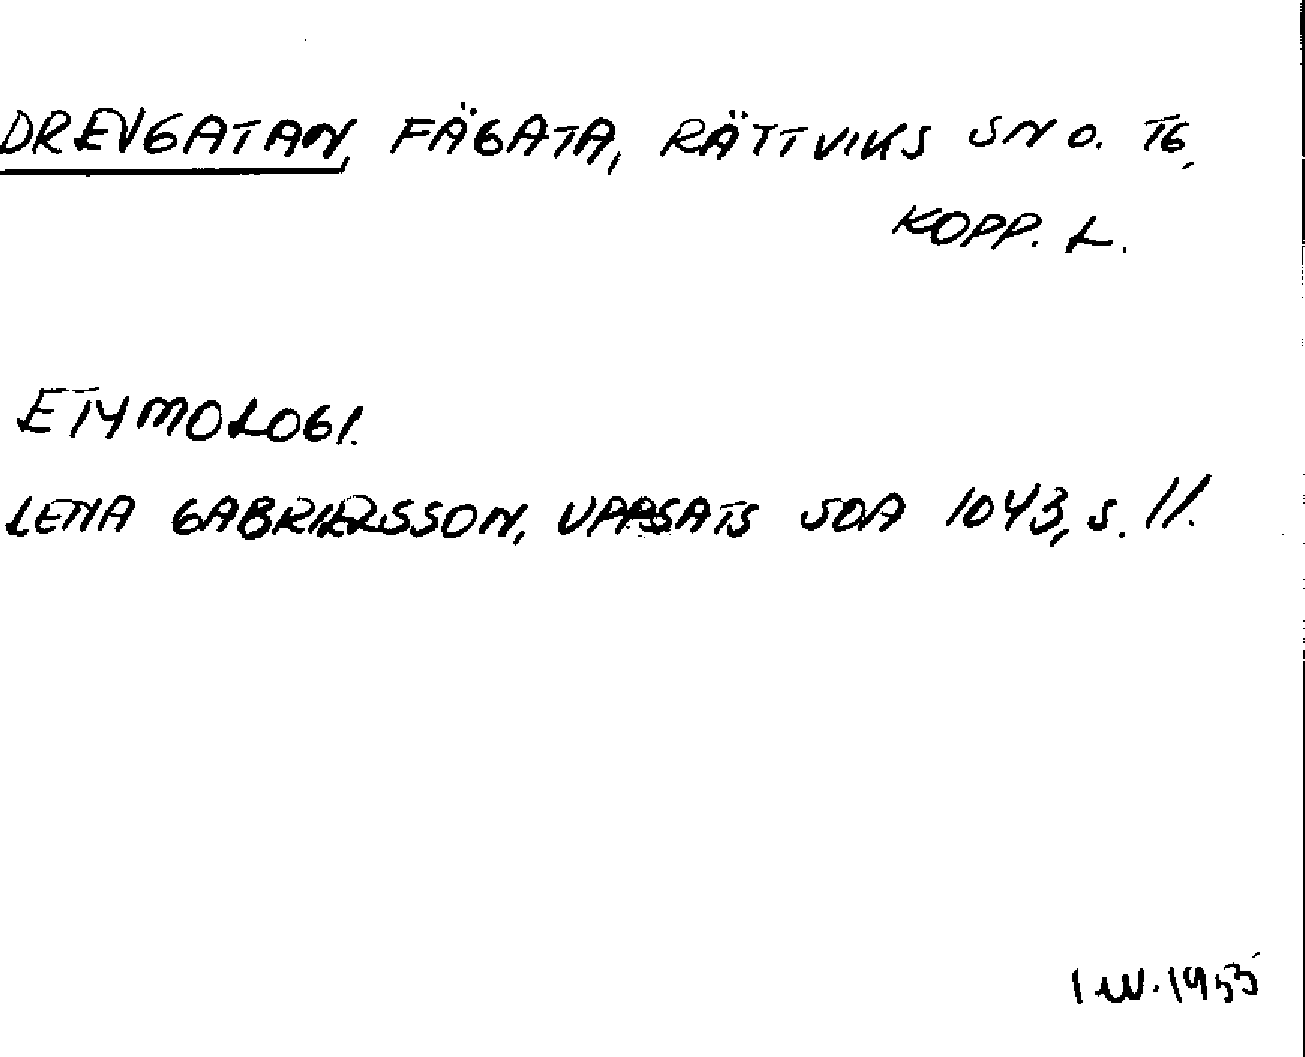 DREVGATAN, FÄGATA, RÄTTVIKS SN O. TG,
KOPP. L.
ETYMOLOGI.
LENA GABRIELSSON, UPPSATS SOA 1043, s. 11.
1953